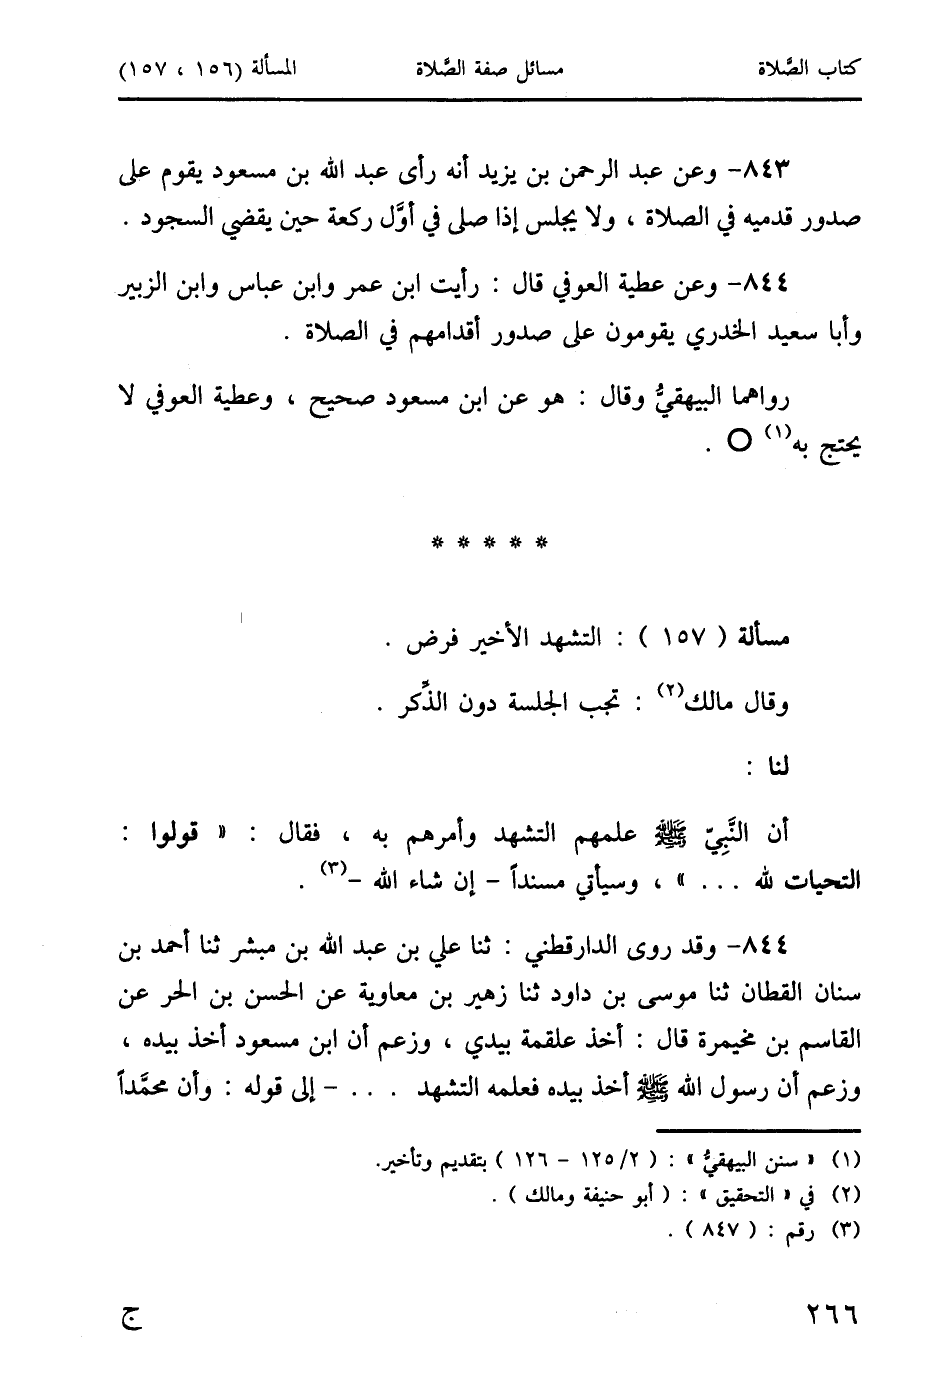 كتاب الصَّلاة مسائل صفة الصَّلاة المسألة (١٥٦ ، ١٥٧)
٨٤٣- وعن عبد الرحمن بن يزيد أنه رأى عبد الله بن مسعود يقوم على
صدور قدميه في الصلاة ، ولا يجلس إذا صلى في أوَّل ركعة حين يقضي السجود .
٨٤٤- وعن عطية العوفي قال : رأيت ابن عمر وابن عباس وابن الزبير
وأبا سعيد الخدري يقومون على صدور أقدامهم في الصلاة .
رواهما البيهقيُّ وقال : هو عن ابن مسعود صحيح ، وعطية العوفي لا
يحتج به(١) O .
* * * * *
مسألة ( ١٥٧ ) : التشهد الأخير فرض .
وقال مالك(٢) : تجب الجلسة دون الذِّكر .
لنا :
أن النَّبِيّ ﷺ علمهم التشهد وأمرهم به ، فقال : « قولوا :
التحيات لله ... » ، وسيأتي مسنداً - إن شاء الله -(٣) .
٨٤٤- وقد روى الدارقطني : ثنا علي بن عبد الله بن مبشر ثنا أحمد بن
سنان القطان ثنا موسى بن داود ثنا زهير بن معاوية عن الحسن بن الحر عن
القاسم بن مخيمرة قال : أخذ علقمة بيدي ، وزعم أن ابن مسعود أخذ بيده ،
وزعم أن رسول الله ﷺ أخذ بيده فعلمه التشهد ... - إلى قوله : وأن محمَّداً
(١) « سنن البيهقيُّ » : ( ٢/ ١٢٥ - ١٢٦ ) بتقديم وتأخير.
(٢) في « التحقيق » : ( أبو حنيفة ومالك ) .
(٣) رقم : ( ٨٤٧ ) .
٢٦٦ ج